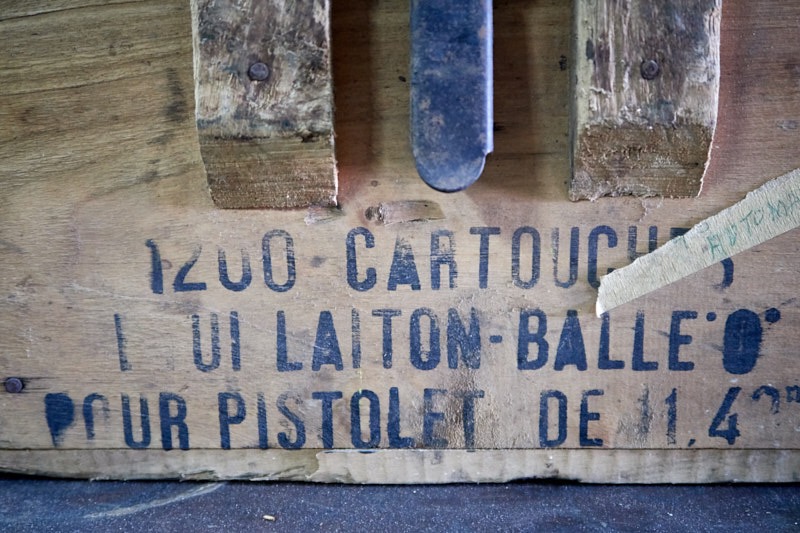 1200 CARTOUCHES
LAITON-BALLE "O"
POUR PISTOLET DE 11,4
AUTOMA